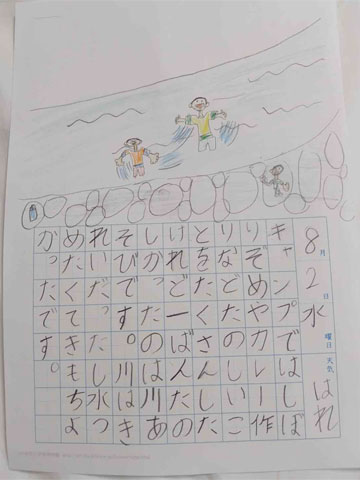 8月2日水曜日 天気 はれ
キャンプではしば
りぞめやカレー作
りなどたのしいこ
とをたくさんした
けれど一ばんたの
しかったのは川あ
そびです。川はき
れいだった。水つ
めたくてきもちよ
かったです。